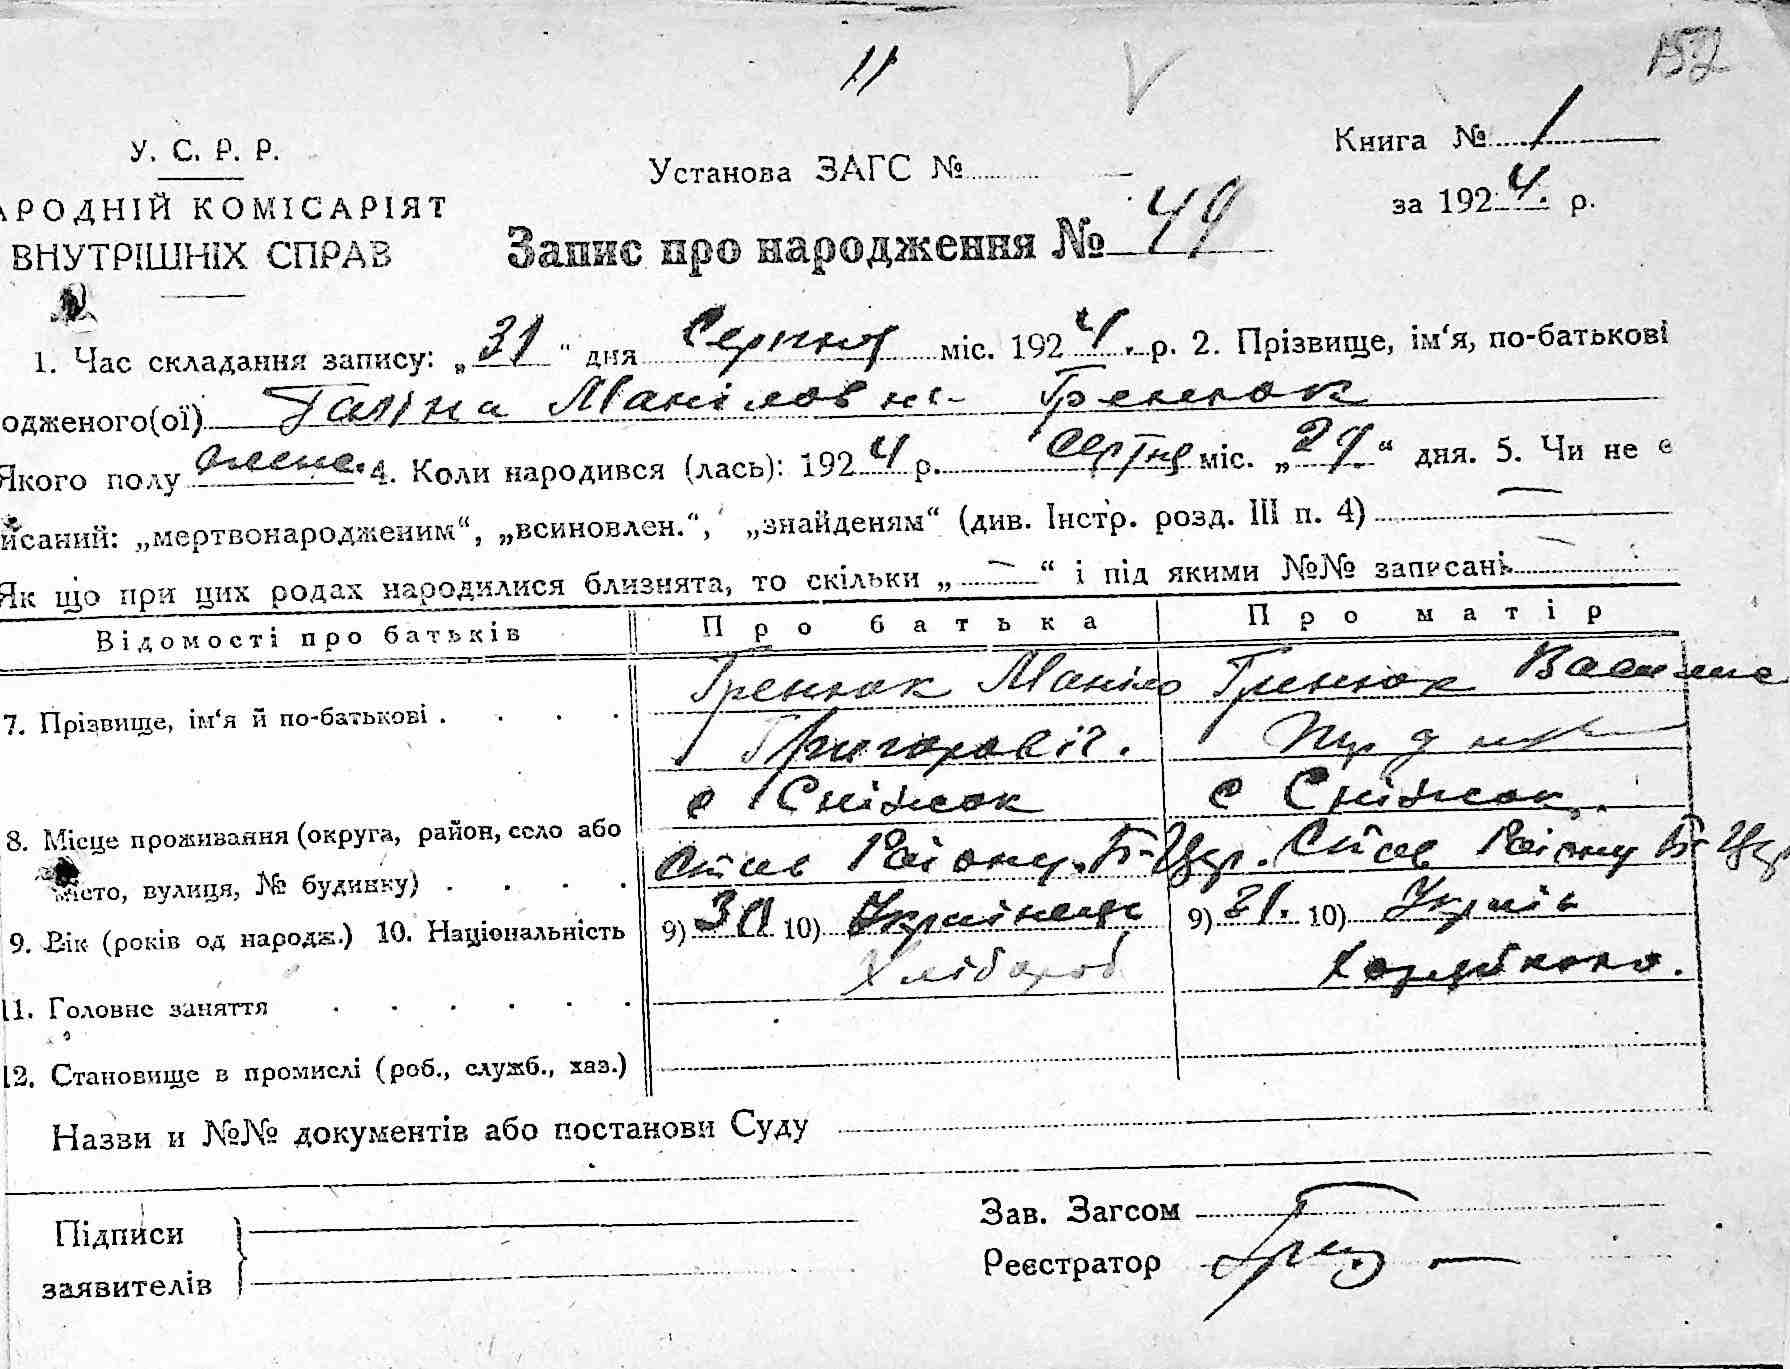 11
152
У. С. Р. Р.
АРОДНІЙ КОМІСАРІЯТ
ВНУТРІШНІХ СПРАВ
Установа ЗАГС №
Книга № 1
за 1924. р.
Запис про народження № 49
1. Час складання запису: „31“ дня Серпня міс. 1924. р. 2. Прізвище, ім‘я, по-батькові
одженого(ої) Галіна Маніловна Гренюк
Якого полу 4. Коли народився (лась): 1924 р. Серпня міс. „29.“ дня. 5. Чи не є
исаний: „мертвонародженим“, „всиновлен.“, „знайденям“ (див. Інстр. розд. III п. 4) —
Як що при цих родах народилися близнята, то скільки „—“ і під якими №№ записані —
Відомості про батьків Про батька Про матір
7. Прізвище, ім‘я й по-батькові . . . . Гренюк Маніло Гренюк
Григоровіч.
с Сніжок с Сніжок.
8. Місце проживання (округа, район, село або
Став Раіону. Б-Цер. Став Раіону Б-Цер
місто, вулиця, № будинку) . . . .
9. Вік (років од народж.) 10. Національність 9) 30 10) Українець 9) 31. 10) Украін
Хлібороб
11. Головне заняття . . . . . .
12. Становище в промислі (роб., служб., хаз.)
Назви и №№ документів або постанови Суду
Підписи
заявителів
Зав. Загсом
Реєстратор